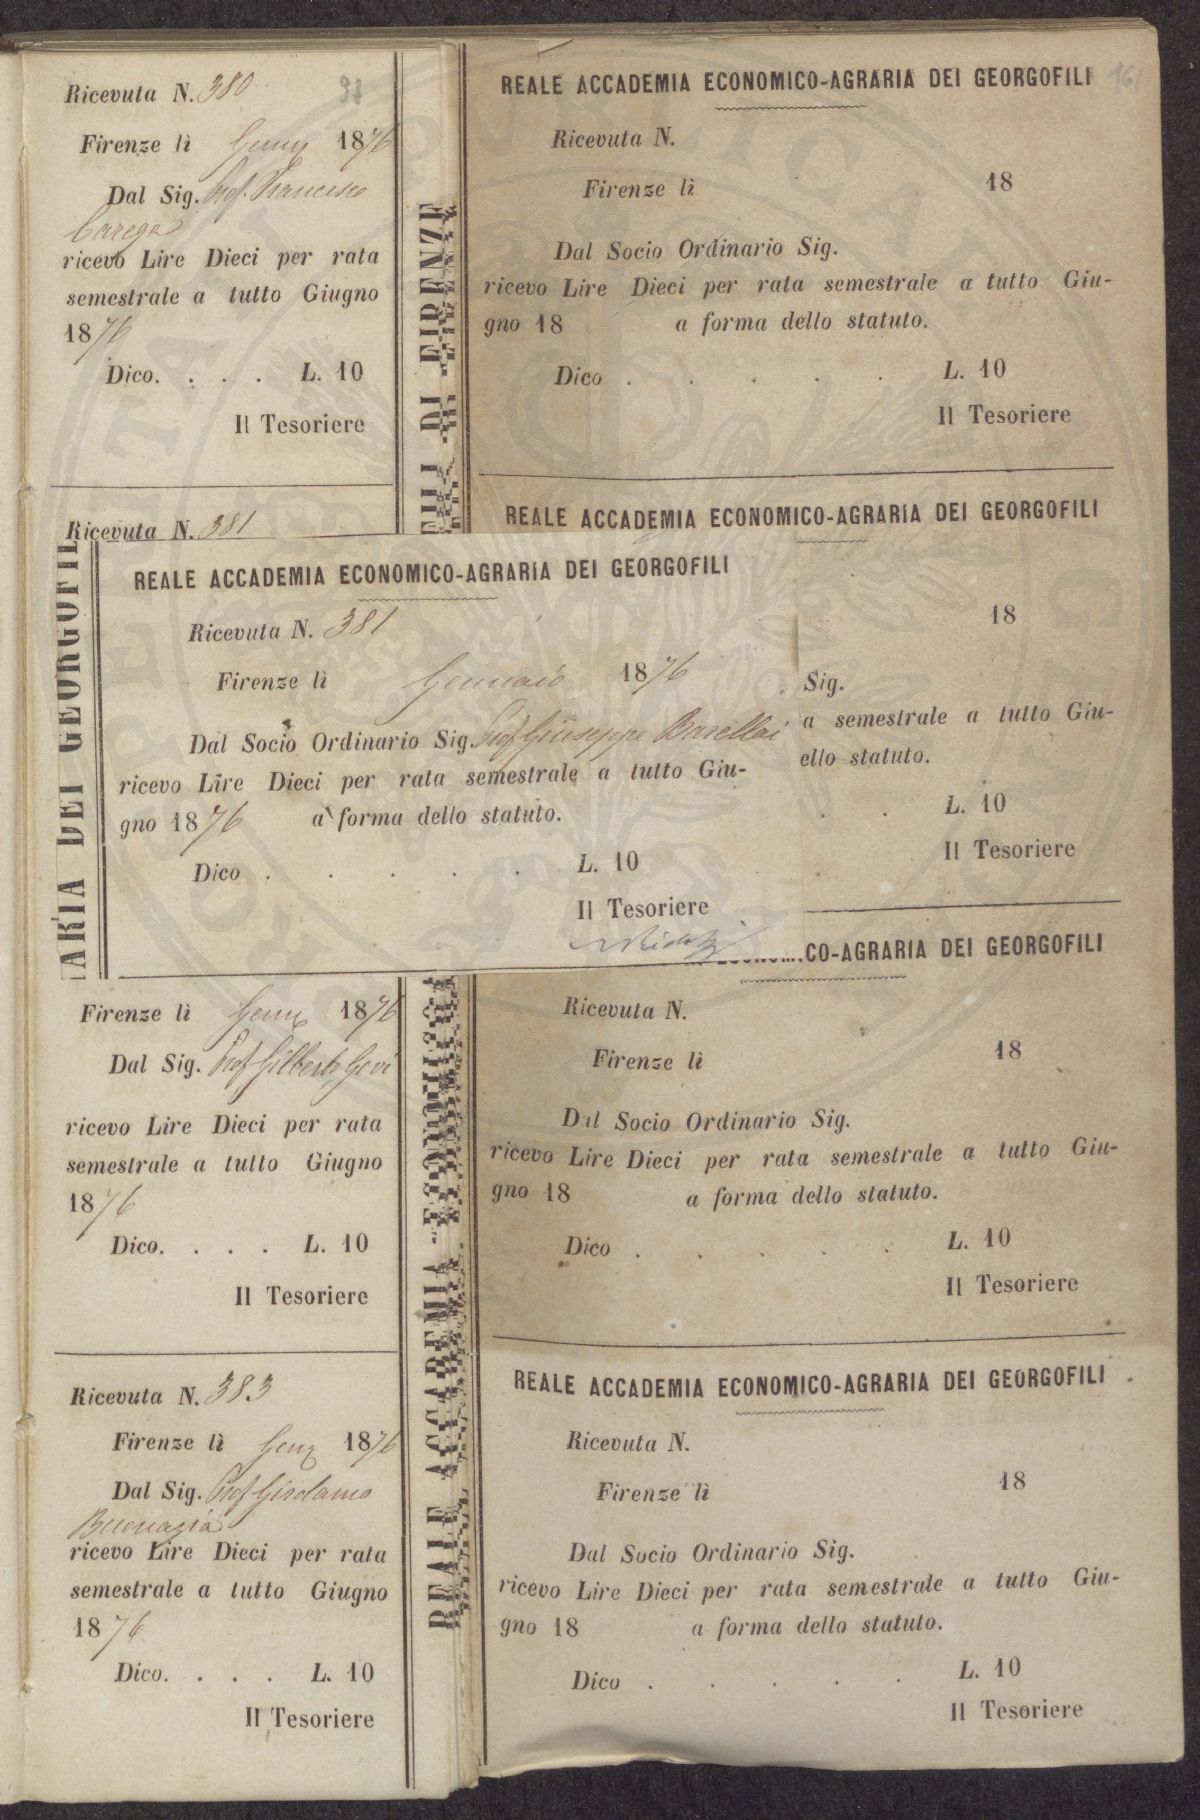 Ricevuta N. 380
Firenze lì Genn 1876
Dal Sig. Prof. Francesco
Carega
ricevo Lire Dieci per rata
semestrale a tutto Giugno
1876
Dico. . . . L. 10
Il Tesoriere
Ricevuta N. 381
REALE ACCADEMIA ECONOMICO-AGRARIA DEI GEORGOFILI
Ricevuta N.
Firenze lì 18
Dal Socio Ordinario Sig.
ricevo Lire Dieci per rata semestrale a tutto Giu-
gno 18 a forma dello statuto.
Dico . . . . . L. 10
Il Tesoriere
REALE ACCADEMIA ECONOMICO-AGRARIA DEI GEORGOFILI
18
Sig.
a semestrale a tutto Giu-
ello statuto.
. . L. 10
Il Tesoriere
ARIA DEI GEORGOFIL
REALE ACCADEMIA ECONOMICO-AGRARIA DEI GEORGOFILI
Ricevuta N. 381
Firenze lì Gennaio 1876
Dal Socio Ordinario Sig. Prof Giuseppe Barellai
ricevo Lire Dieci per rata semestrale a tutto Giu-
gno 1876 a forma dello statuto.
Dico . . . . . L. 10
Il Tesoriere
Firenze lì Genn 1876
Dal Sig. Prof Gilberto Govi
ricevo Lire Dieci per rata
semestrale a tutto Giugno
1876
Dico. . . . L. 10
Il Tesoriere
CO-AGRARIA DEI GEORGOFILI
Ricevuta N.
Firenze lì 18
Dal Socio Ordinario Sig.
ricevo Lire Dieci per rata semestrale a tutto Giu-
gno 18 a forma dello statuto.
Dico . . . . . L. 10
Il Tesoriere
Ricevuta N. 383
Firenze lì Genn 1876
Dal Sig. Prof Girolamo
Buonazia
ricevo Lire Dieci per rata
semestrale a tutto Giugno
1876
Dico. . . . L. 10
Il Tesoriere
REALE ACCADEMIA ECONOMICO-AGRARIA DEI GEORGOFILI
Ricevuta N.
Firenze lì 18
Dal Socio Ordinario Sig.
ricevo Lire Dieci per rata semestrale a tutto Giu-
gno 18 a forma dello statuto.
Dico . . . . . L. 10
Il Tesoriere